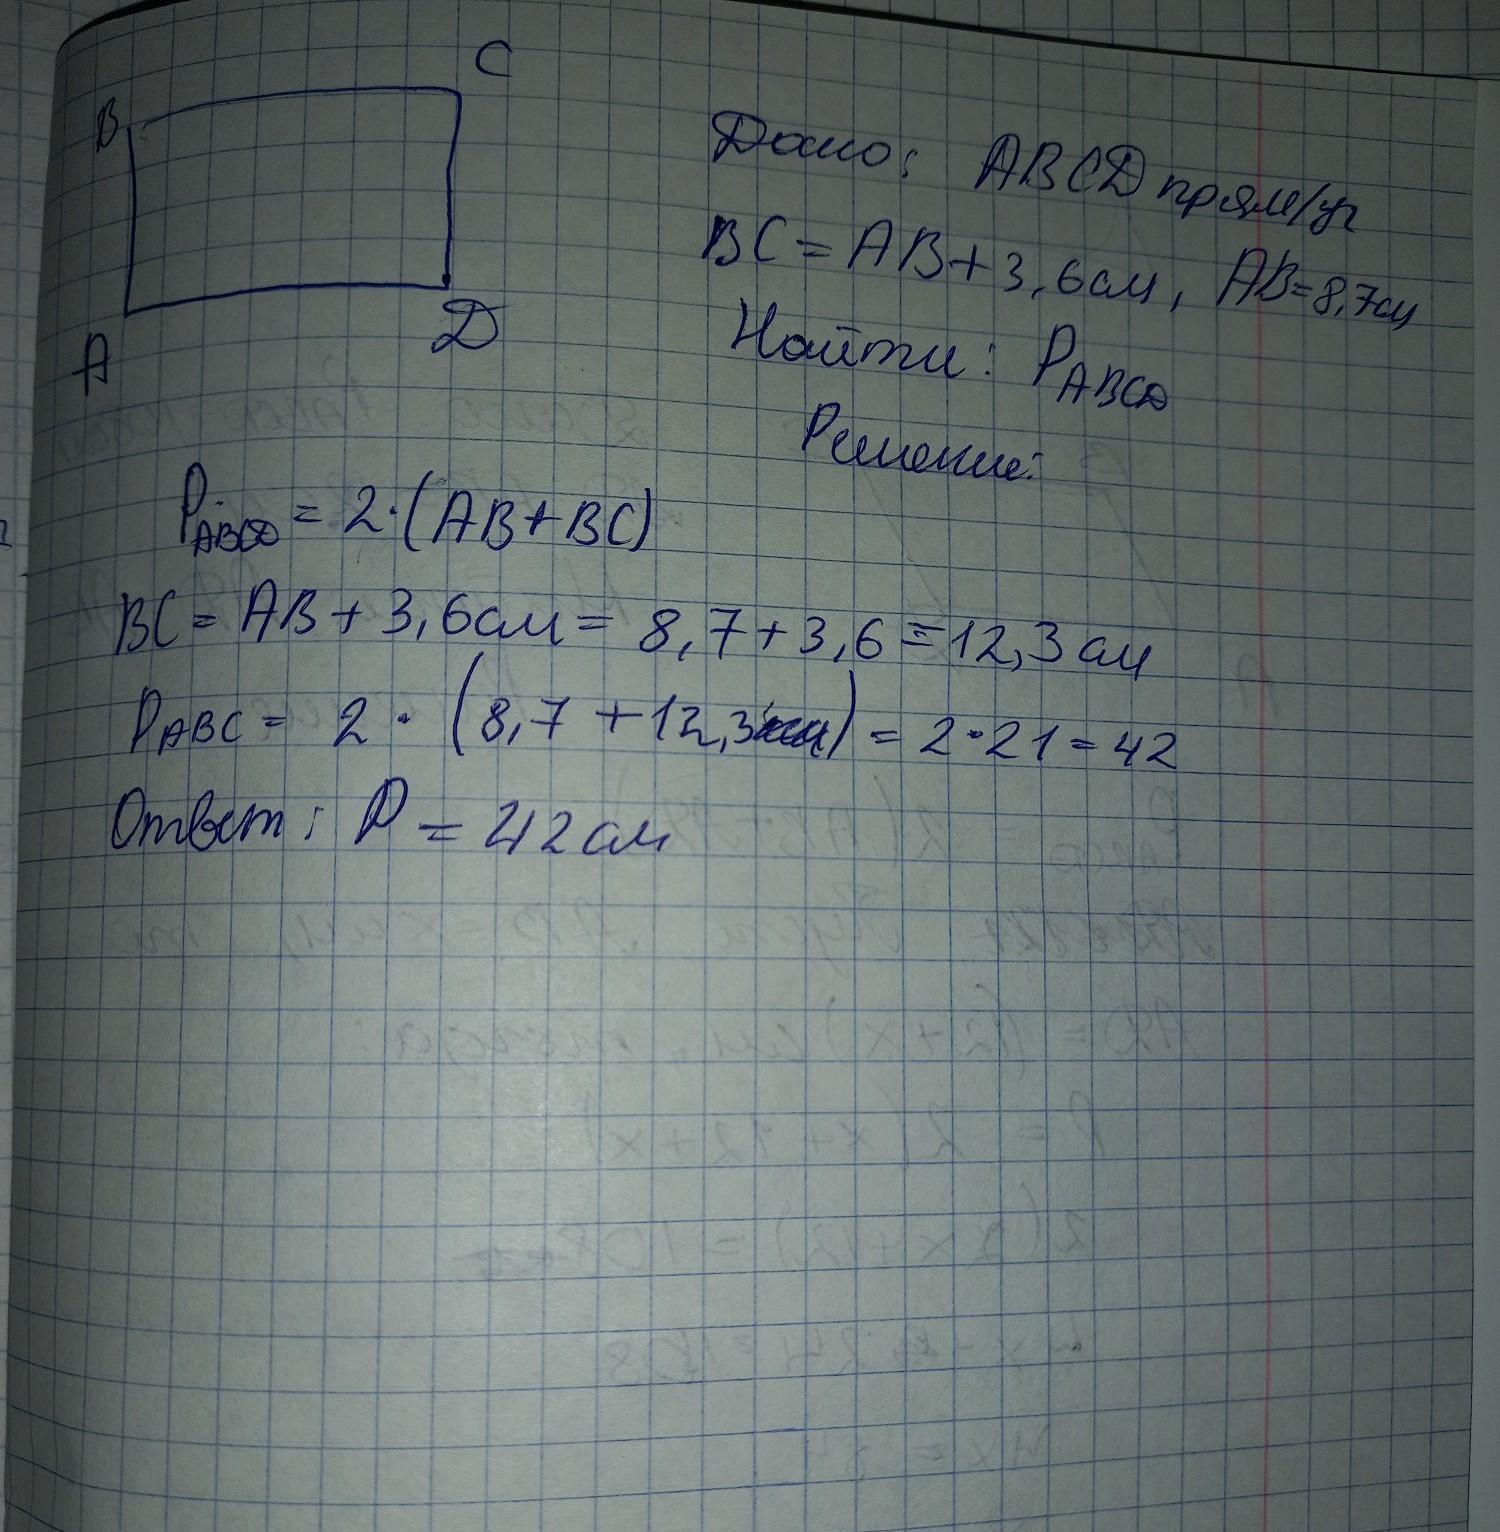 B
C
A
D
Дано: ABCD прям/уг
BC = AB + 3,6 см, AB = 8,7 см
Найти: P ABCD
Решение:
P ABCD = 2·(AB + BC)
BC = AB + 3,6 см = 8,7 + 3,6 = 12,3 см
P ABC = 2 · (8,7 + 12,3) = 2·21 = 42
Ответ: P = 42 см